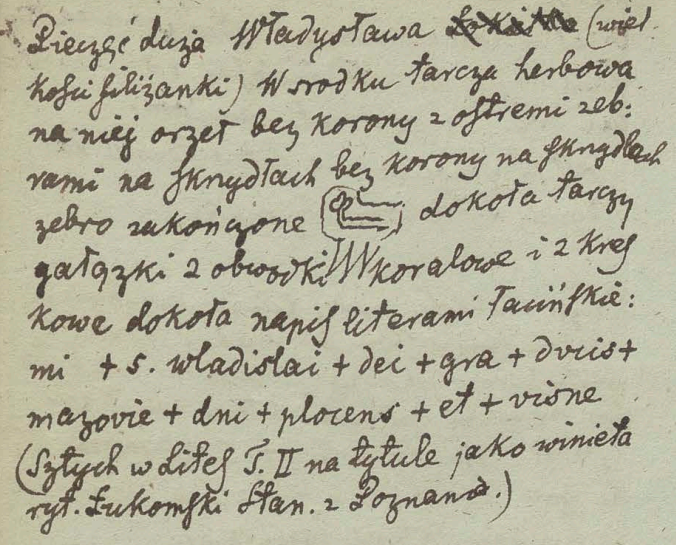 Pieczęć duża Władysława (wiel-
kości filiżanki) W srodku tarcza herbowa
na niej orzeł bez korony z ostremi zeb:
rami na skrzydłach bez korony na skrzydłach
zebro zakończone dokoła tarczy
gałązki 2 obwodki koralowe i 2 kres
kowe dokoła napis literami łacińskie:
mi + s. wladislai + dei + gra + dvcis +
mazovie + dni + plocens + et + visne
(Sztych w Lites T. II na tytule jako winieta
ryt. Łukomski Stan. z Poznania.)